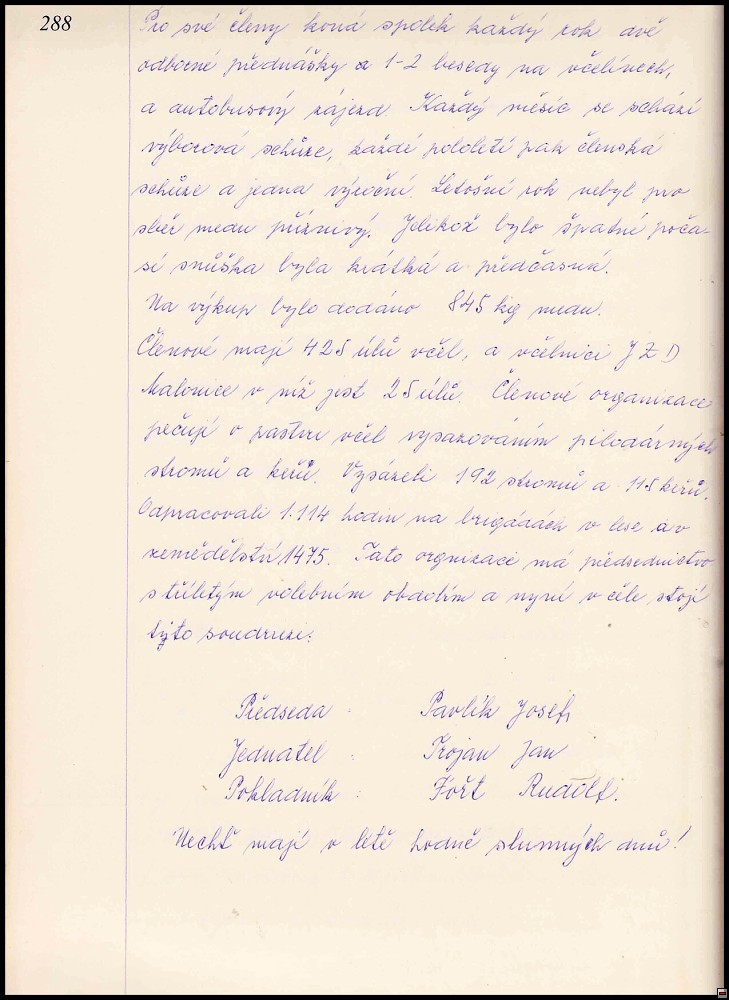 288
Pro své členy koná spolek každý rok dvě
odborné přednášky a 1-2 besedy na včelínech,
a autobusový zájezd. Každý měsíc se schází
výborová schůze, každé pololetí pak členská
schůze a jedna výroční. Letošní rok nebyl pro
sběr medu příznivý. Jelikož bylo špatné poča-
sí snůška byla krátká a předčasná.
Na výkup bylo dodáno 845 kg medu.
Členové mají 425 úlů včel, a včelnici JZD
Malonice v níž jest 25 úlů. Členové organizace
pečují o pastvu včel vysazováním pilodárných
stromů a keřů. Vysázeli 192 stromů a 115 keřů.
Odpracovali 1.114 hodin na brigádách v lese a v
zemědělství 1475. Tato orgnizaci má předsednictvo
s tříletým volebním obdobím a nyní v čele stojí
tyto soudruzi:
Předseda : Pavlík Josef,
Jednatel : Trojan Jan
Pokladník : Fořt Rudolf.
Nechť mají v létě hodně slunných dnů!